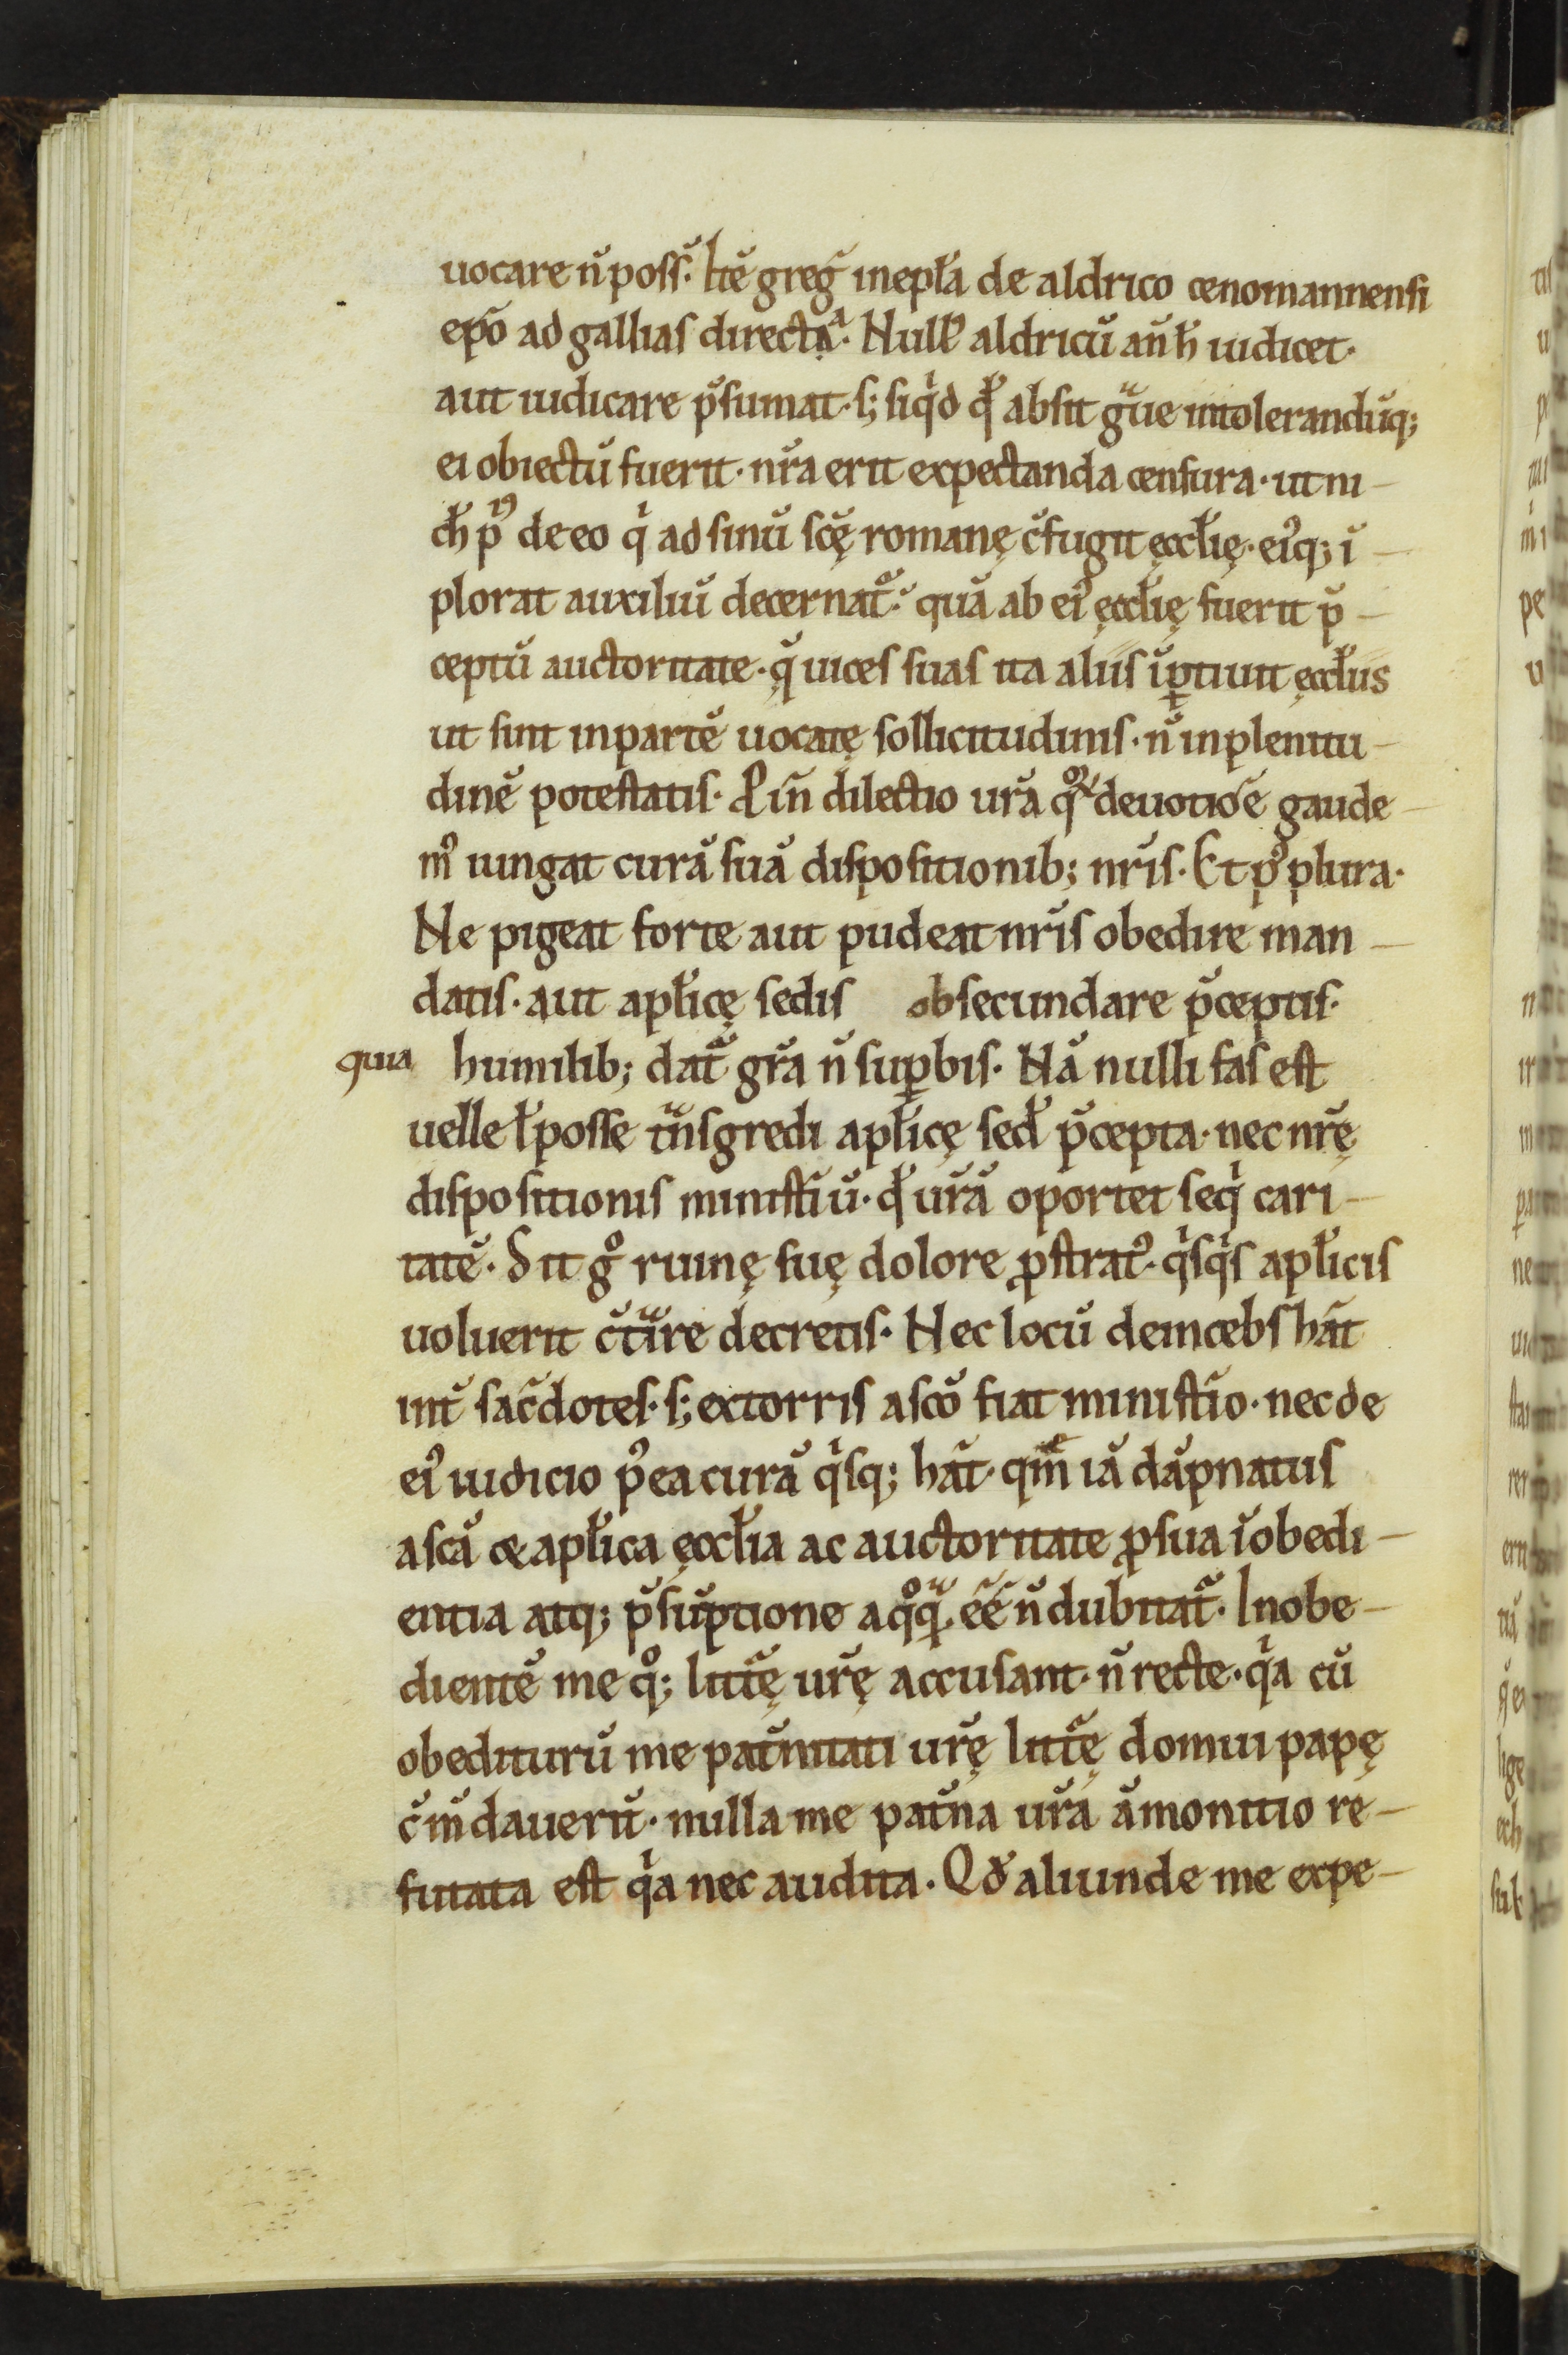 uocare n̄ poss̄. Itē greg̃ in epl̃a de aldrico cenomannensi
ep̃o ad gallias directa. Null᷒ aldricū añ h̄ iudicet.
aut iudicare p̄sumat. s; siqͥd qđ absit gͣue intolerandūq;
ei obiectū fuerit. nr̃a erit expectanda censura. ut ni
ch̄ pͥ᷒ de eo qͥ ad sinū sc̄ę romanę c̄fugit ęccl̃ię. ei᷒q; ī
plorat auxiliū decernat᷑. quā ab ei᷒ ęccl̃ię fuerit p̄
ceptū auctoritate. q̄ uices suas ita aliis īꝑtiuit ęccl̃iis
ut sint in partē uocatę sollicitudinis. n̄ in plenitu
dinē potestatis. Pin̄ dilectio ur̃a qͦꝝ deuotiōe gaude
m᷒ iungat curā suā dispositionib; nr̃is. Et p᷒ plura.
Ne pigeat forte aut pudeat nr̃is obedire man
datis. aut apl̃icę sedis obsecundare p̄ceptis.
quia humilib; dat᷑ gr̃a n̄ suꝑbis. Nā nulli fas est
uelle ł posse tͣnsgredi apl̃icę sed̃ p̄cepta. nec nr̃ę
dispositionis minist̃iū. qđ ur̃ā oportet seqͥ cari
tatē. Sit gͦ ruinę suę dolore ꝓstrat᷒. qͥsqͥs apl̃icis
uoluerit c̄tͣire decretis. Nec locū deincebs hāt
int̃ sac̃dotes. s; extorris a sc̄o fiat minist̃io. nec de
ei᷒ iudicio p᷒ea curā qͥsq; hāt. qm̄ iā dāpnatus
a sc̄a & apl̃ica ęccl̃ia ac auctoritate ꝓ sua īobedi
entia atq; p̄sūptione a qͦqͣ eē n̄ dubitat᷑. Inobe
dientē me qͦq; litt̃ę ur̃ę accusant. n̄ recte. qͥa cū
obediturū me pat̃nitati ur̃ę litt̃ę domni papę
c̄m̄dauerū. nulla me pat̃na ur̃a āmonitio re
futata est qͥa nec audita. Qđ aliunde me expe